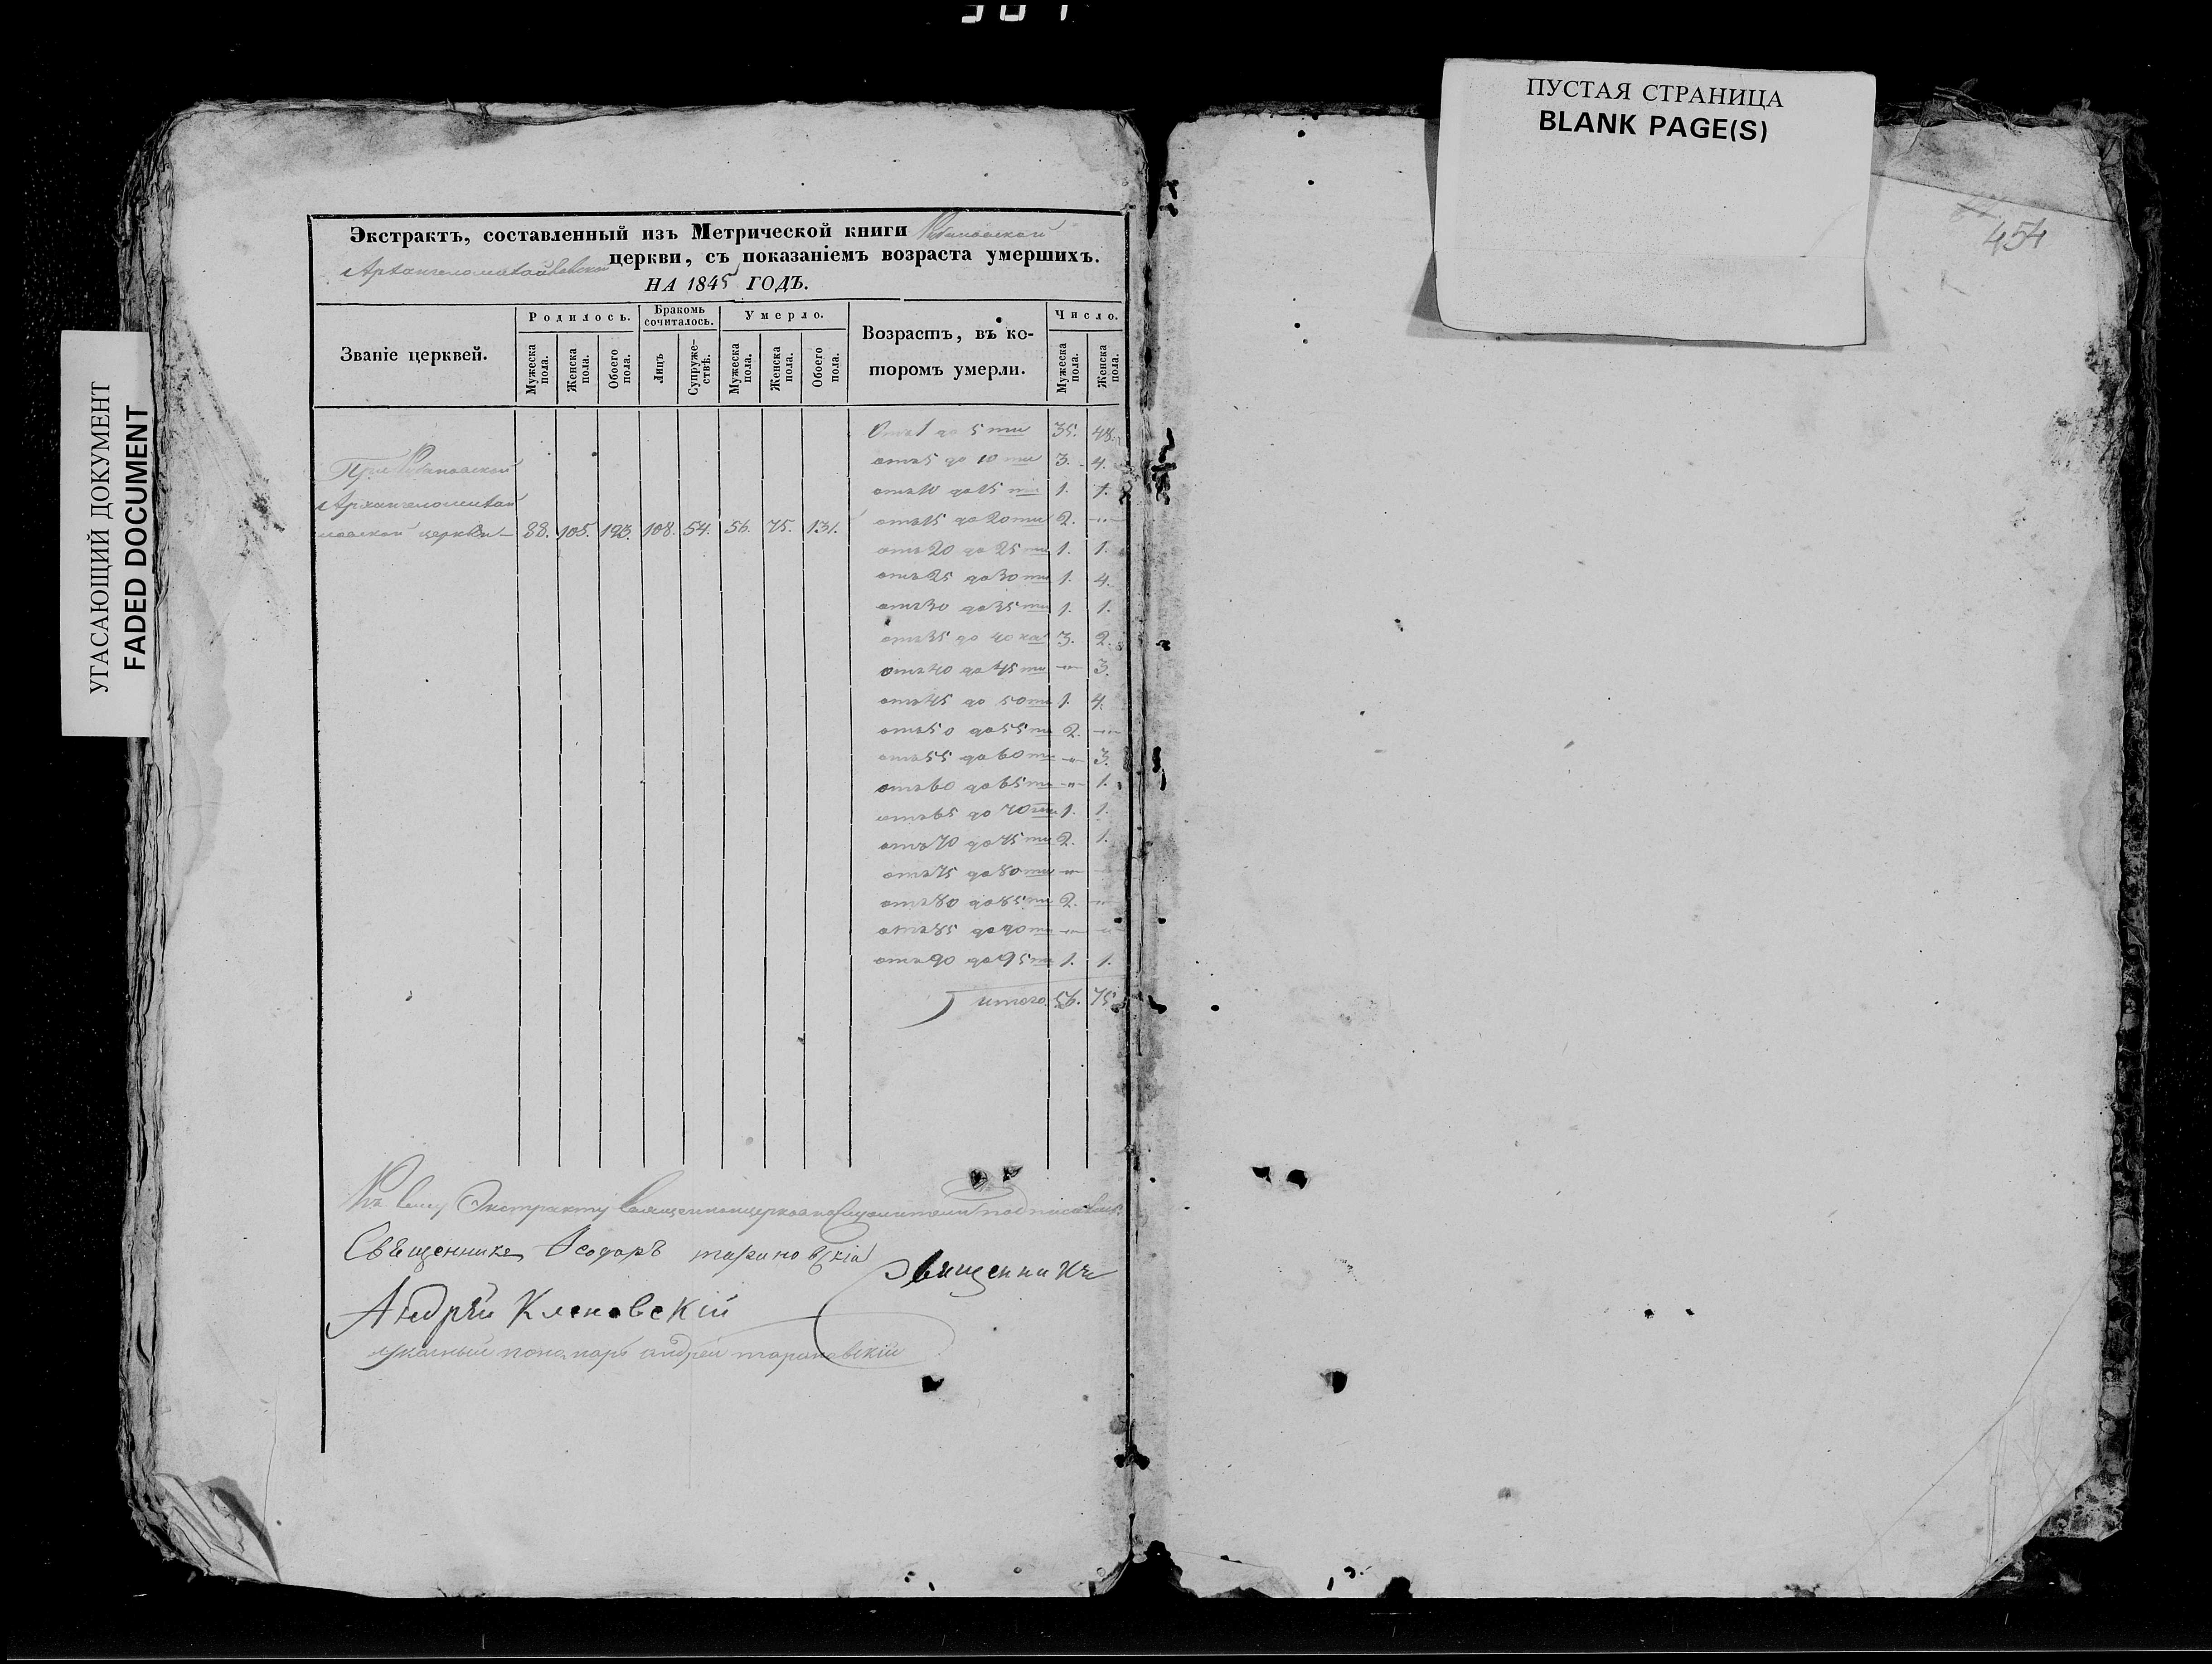 УГАСАЮЩИЙ ДОКУМЕНТ
FADED DOCUMENT
Экстрактъ, составленный изъ Метрической книги
Архангеломихайловской церкви, съ показаніемъ возраста умершихъ.
НА 1845 ГОДЪ.
Званіе церквей.
Родилось.
Бракомъ сочиталось.
Умерло.
Возрастъ, въ которомъ умерли.
Число.
Мужеска пола.
Женска пола.
Обоего пола.
Лицъ
Супружествъ.
Мужеска пола.
Женска пола.
Обоего пола.
Мужеска пола.
Женска пола.
При
Архангеломихай
ловской церкви — 88. 105. 193. 108. 54. 56. 75. 131.
Отъ 1 до 5 ти 35. 48.
отъ 5 до 10 ти 3. 4.
отъ 10 до 15 ти 1. 1.
отъ 15 до 20 ти 2. —"—
отъ 20 до 25 ти 1. 1.
отъ 25 до 30 ти 1. 4.
отъ 30 до 35 ти 1. 1.
отъ 35 до 40 ка 3. 2.
отъ 40 до 45 ти —"— 3.
отъ 45 до 50 ти 1. 4.
отъ 50 до 55 ти 2. —"—
отъ 55 до 60 ти —"— 3.
отъ 60 до 65 ти —"— 1.
отъ 65 до 70 ти 1. 1.
отъ 70 до 75 ти 2. 1.
отъ 75 до 80 ти —"— —
отъ 80 до 85 ти 2. —"—
отъ 85 до 90 то —"— —"—
отъ 90 до 95 ти 1. 1.
итого 56. 75.
Къ сему Экстракту священноцерковнослужители подписались
Священникъ Ѳеодоръ тарановскій
Священникъ
Андрей Кленовскій
указный пономарь андрей тарановскій
ПУСТАЯ СТРАНИЦА
BLANK PAGE(S)
454